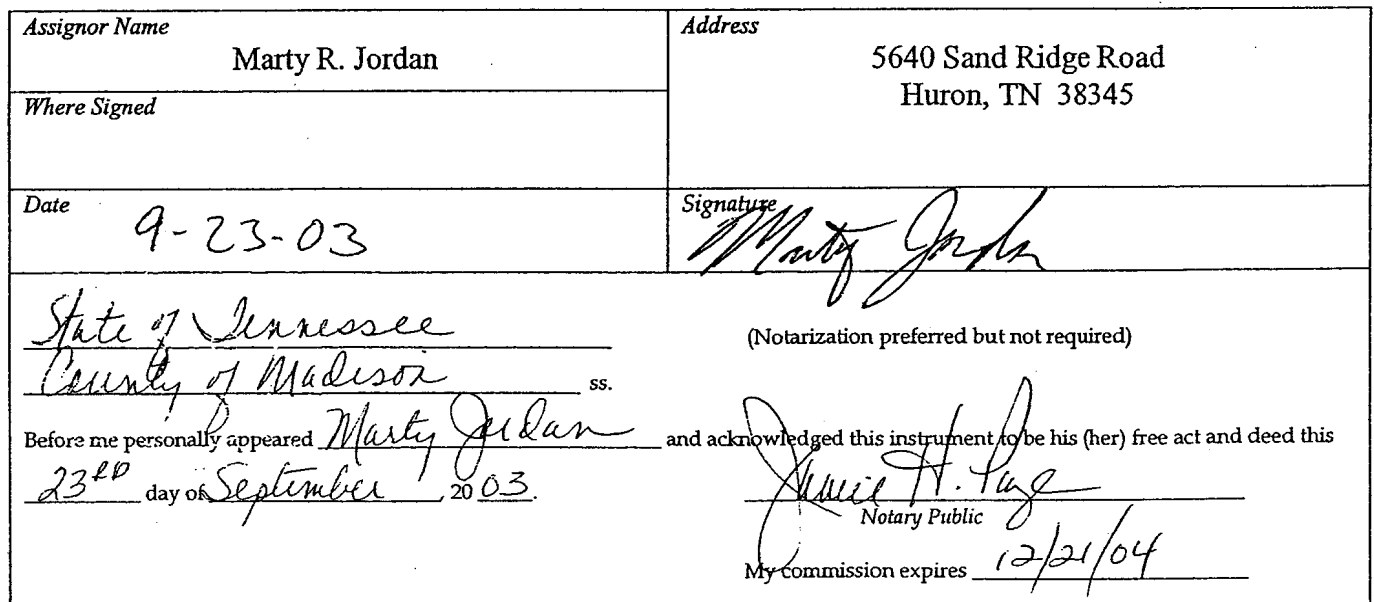 Assignor Name
Marty R. Jordan
Address
5640 Sand Ridge Road
Huron, TN 38345
Where Signed
Date
9-23-03
Signature
Marty Jordan
State of Tennessee
County of Madison ss.
(Notarization preferred but not required)
Before me personally appeared Marty Jordan and acknowledged this instrument to be his (her) free act and deed this
23RD day of September, 2003.
H. Page
Notary Public
My commission expires 12/21/04